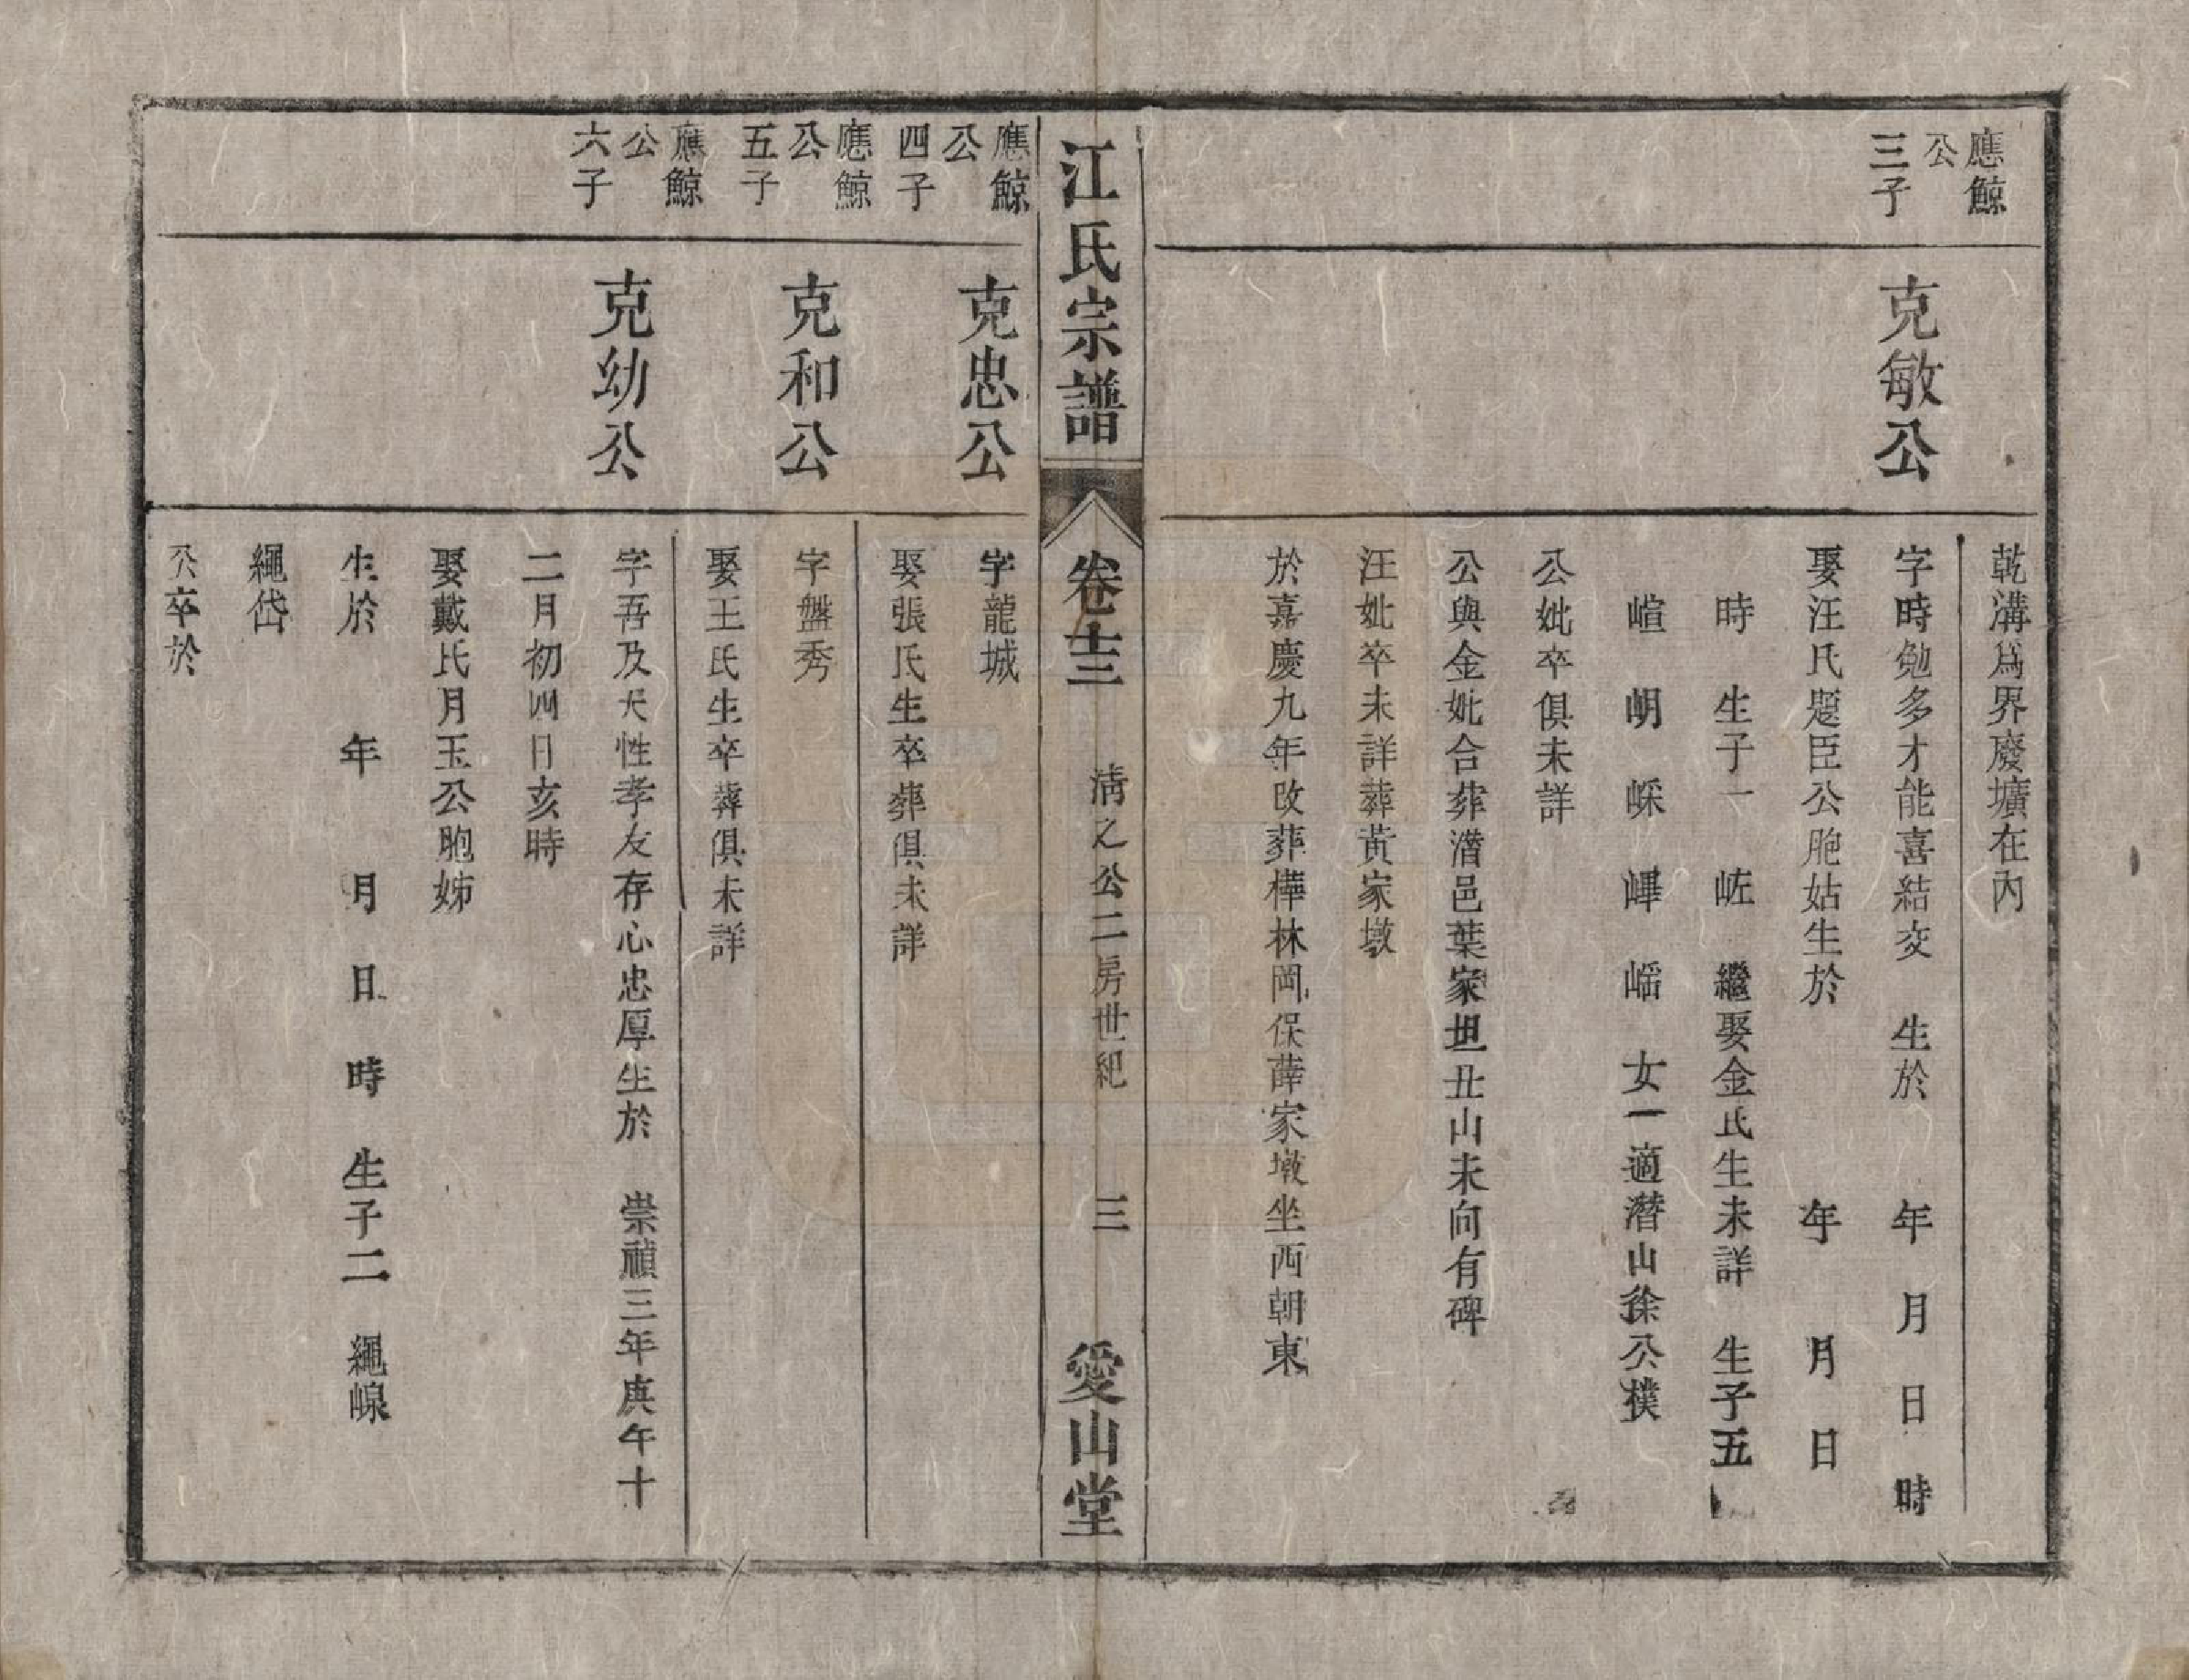 乾溝爲界廢壙在內
應鯨
公
三子
克敏公
字時勉多才能喜結交 生於 年 月 日 時
娶汪氏題臣公胞姑生於 年 月 日
時 生子一 岻 繼娶金氏生未詳 生子五
㟲 岄 崵 㟸 嵧 女一適潛山徐公樸
公妣卒俱未詳
公與金妣合葬潛邑葉家坦丑山未向有碑
汪妣卒未詳葬黃家墩
於嘉慶九年改葬樺林岡保薛家墩坐西朝東
江氏宗譜
卷十三
淸之公二房世紀
三
愛山堂
應鯨
公
四子
克忠公
字龍城
娶張氏生卒葬俱未詳
應鯨
公
五子
克和公
字盤秀
娶王氏生卒葬俱未詳
應鯨
公
六子
克幼公
字吾及天性孝友存心忠厚生於 崇禎三年庚午十
二月初四日亥時
娶戴氏月玉公胞姊
生於 年 月 日 時 生子二 繩㟫
繩岱
公卒於